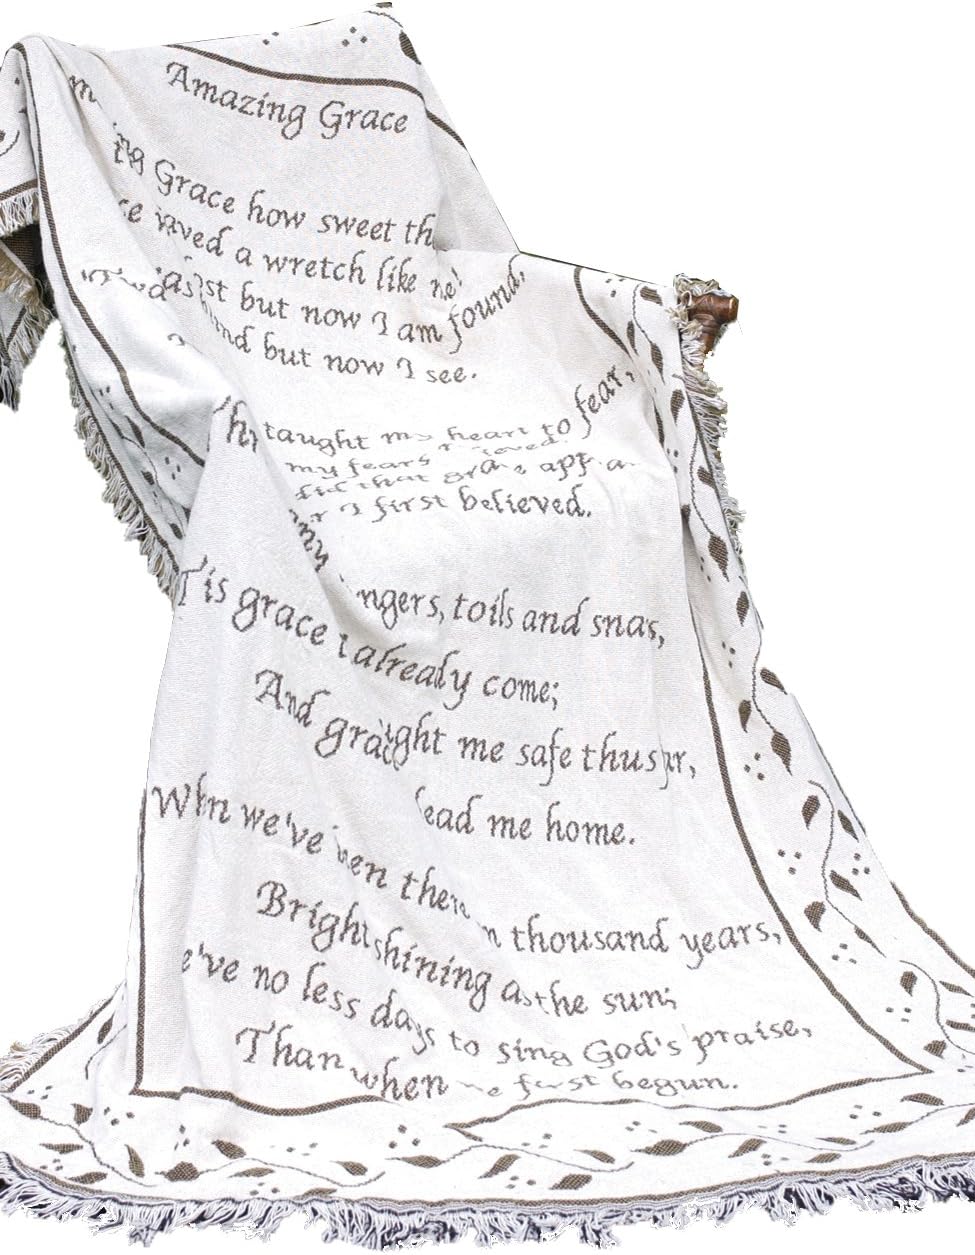 Amazing Grace
Grace how sweet
saved a wretch like me!
but now I am found,
but now I see.
taught my heart to fear,
my fears relieved.
did that grace appear
I first believed.
toils and
'Tis grace already come;
And me safe thus
lead me home.
When we've been there thousand years,
Bright shining as the sun;
no less days to sing God's praise,
Than when we first begun.